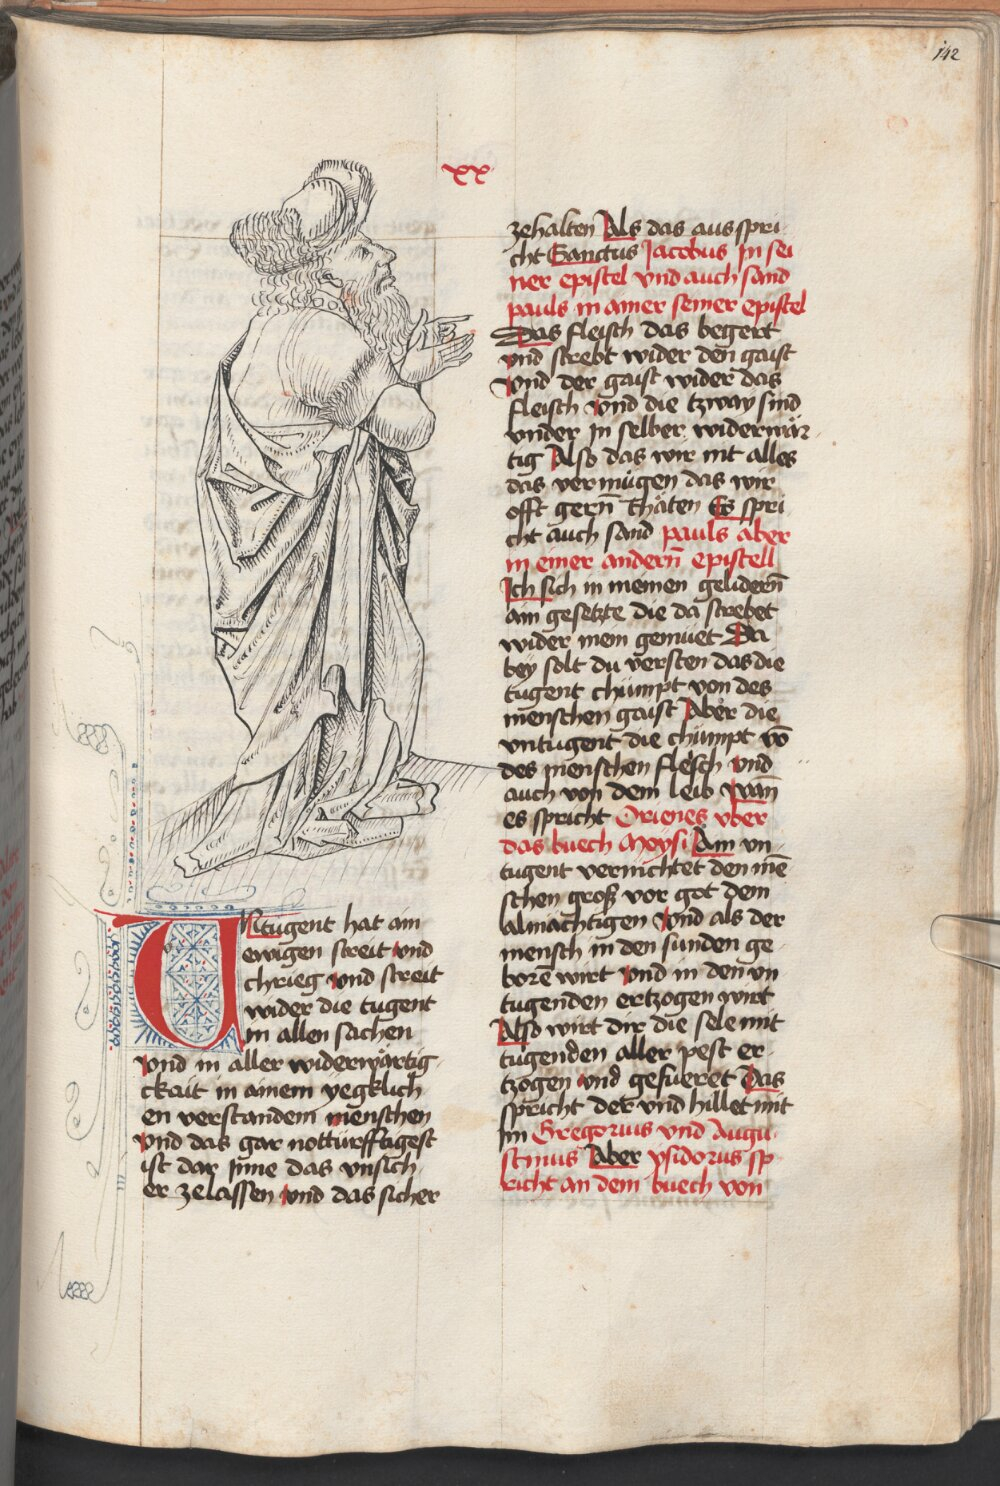 142
xx
Untugent hat am
ewigen streit vnd
chrieg vnd streit
wider die tugent
in allen sachen
vnd in aller widerwårtig
ckait in ainem yegklich
en verstandem menschen
vnd das gar notturfftigest
ist dar Inne das vnsich
er zelassen vnd das sicher
zehalten Als das aus spri
cht Sanctus Jacobus In sei
ner epistel vnd auch sand
pauls in ainer seiner epistel
Das fleisch das begert
vnd strebt wider den gaist
vnd der gaist wider das
fleisch vnd die tzway sind
vnder In selber widerwår
tig Also das wir nit alles
das vermügen das wir
offt gern̄ thåten Es spri
cht auch sand pauls aber
in einer andern̄ epistell
Ich sich in meinen gelidern̄
ain gesetzte die da strebet
wider mein gemuet Da
bey solt du versten das die
tugent chümpt von des
menschen gaist Aber die
vntugent die chümpt vō
des menschen flesch vnd
auch von dem leib wan̄
es spricht Orienes vber
das buech Moysi Ain vn
tugent vernichtet den mē
schen groß vor got dem
almächtigen Vnd als der
mensch in den sunden ge
borē wirt vnd in den vn
tugenden ertzogen wirt
Also wirt dir die sele mit
tugenden aller pest er
tzogen vnd gefueret Das
spricht der vnd hillet mit
Im Gregorius vnd Augu
stinus Aber ysidorus sp
richt an dem buech von